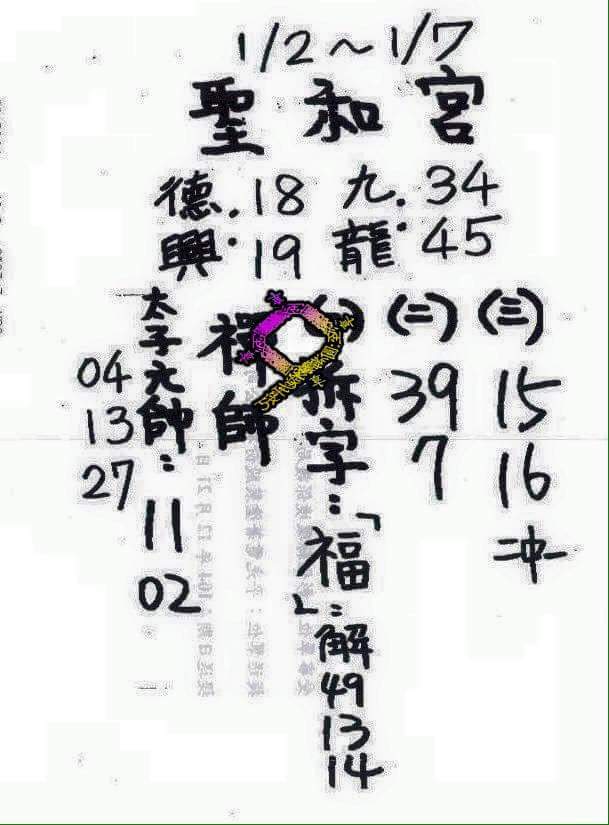 1/2～1/7
聖和宮
德. 18 九. 34
興. 19 龍. 45
(三)
15
16
二中一
(二)
39
7
拆字：「福」：解
49
13
14
禪師
太子元帥：11
02
04
13
27